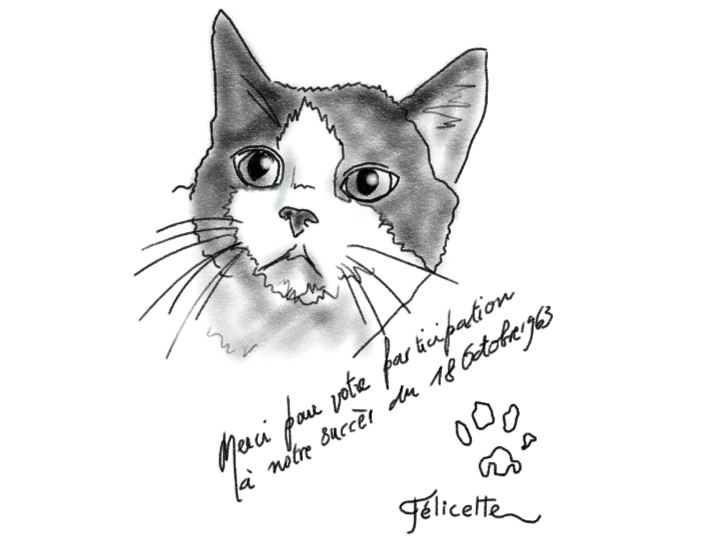 Merci pour votre participation
à notre succès du 18 Octobre 1963
Félicette